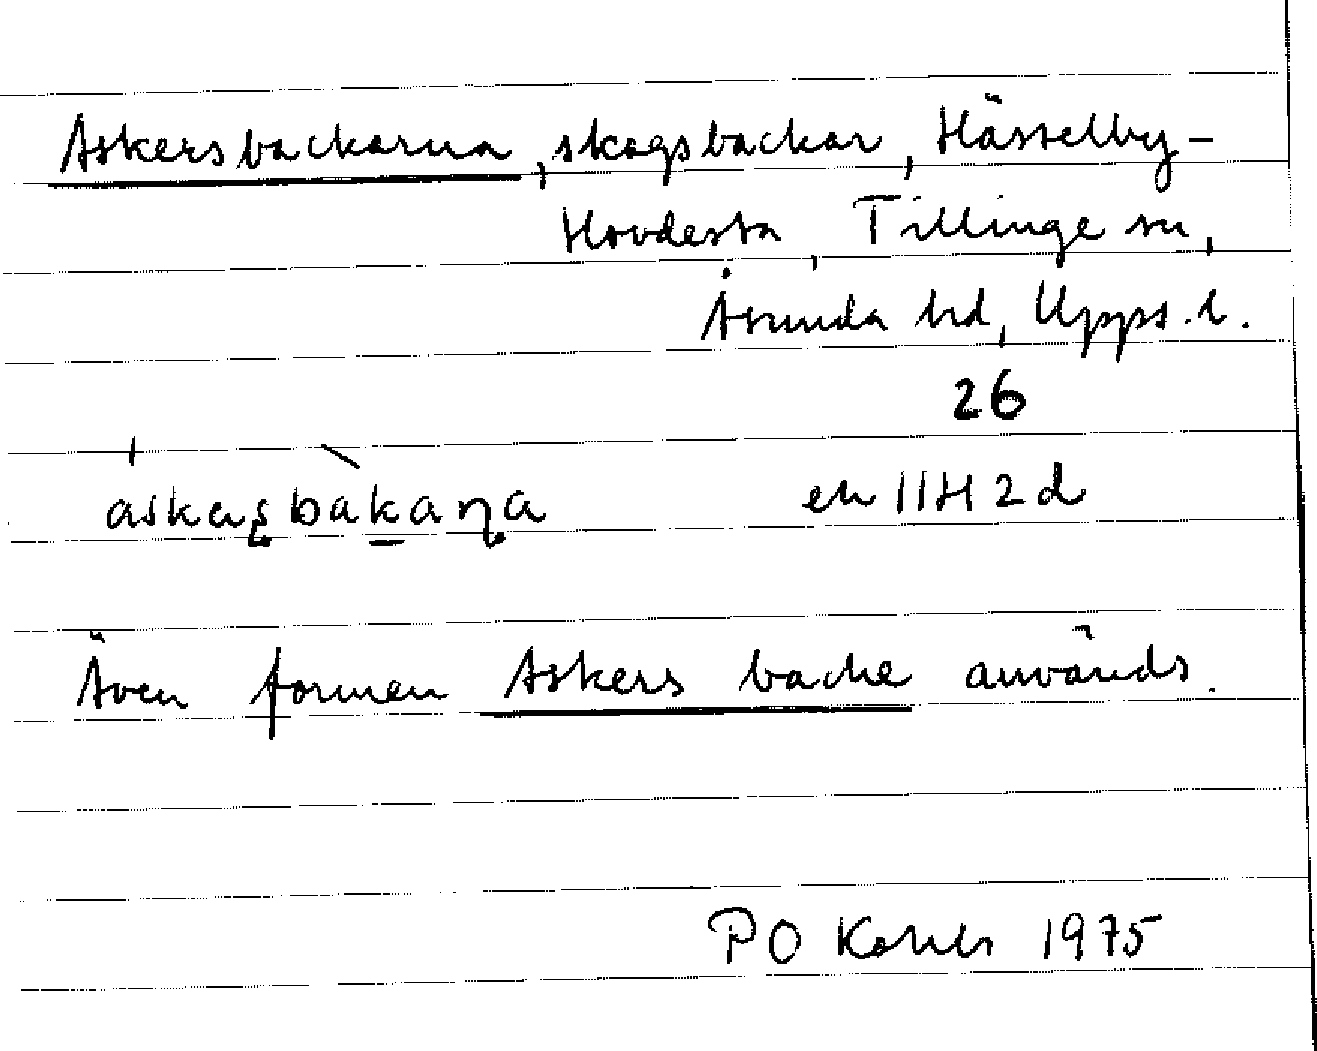 Askersbackarna, skogsbackar, Hässelby-
Hovdesta, Tillinge sn,
Åsunda hd, Upps. l.
26
askaʂbakaɳa
ek 11H2d
Även formen Askers backe används.
PO 1975